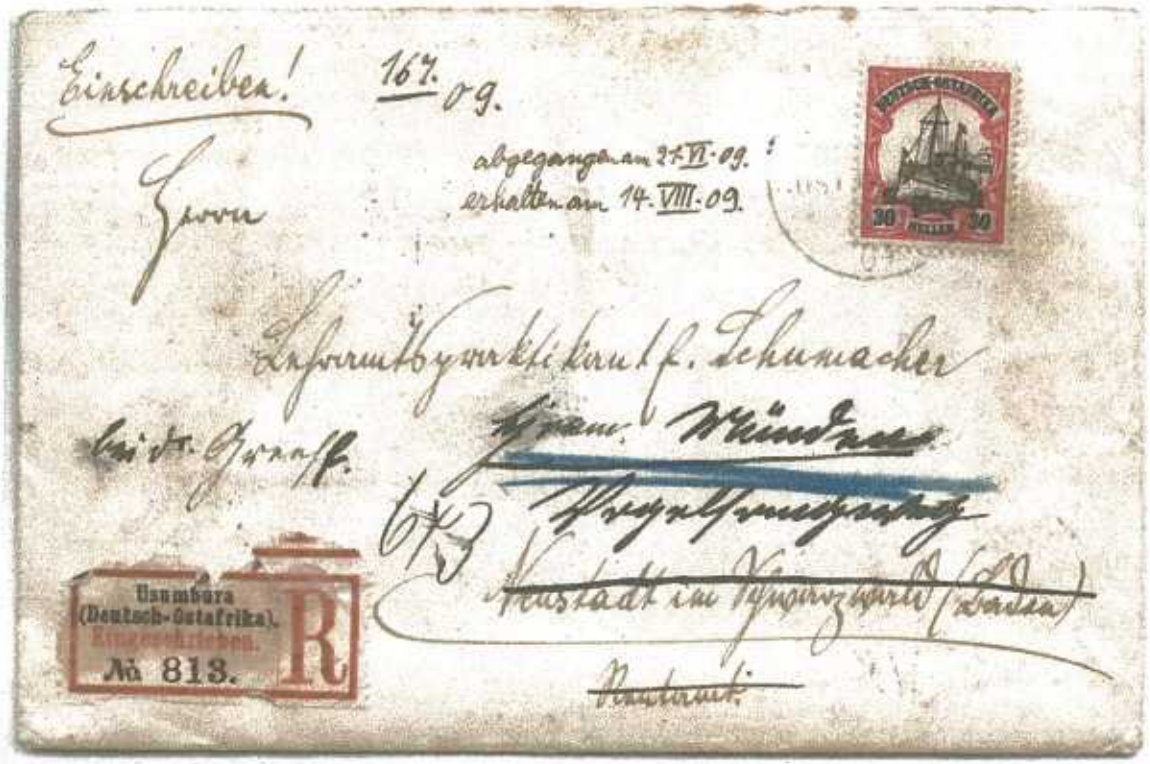 Einschreiben!
167.
09.
abgegangen am 27.VI.09.
erhalten am 14.VIII.09.
Herrn
DEUTSCH-OSTAFRIKA
30 HELLER 30
Lehramtspraktikant f. Schumacher
Hann. Münden
bei dr.
Vogelsangweg
673
Neustadt im Schwarzwald (Baden)
Usumbura
(Deutsch-Ostafrika).
Eingeschrieben.
R
No 813.